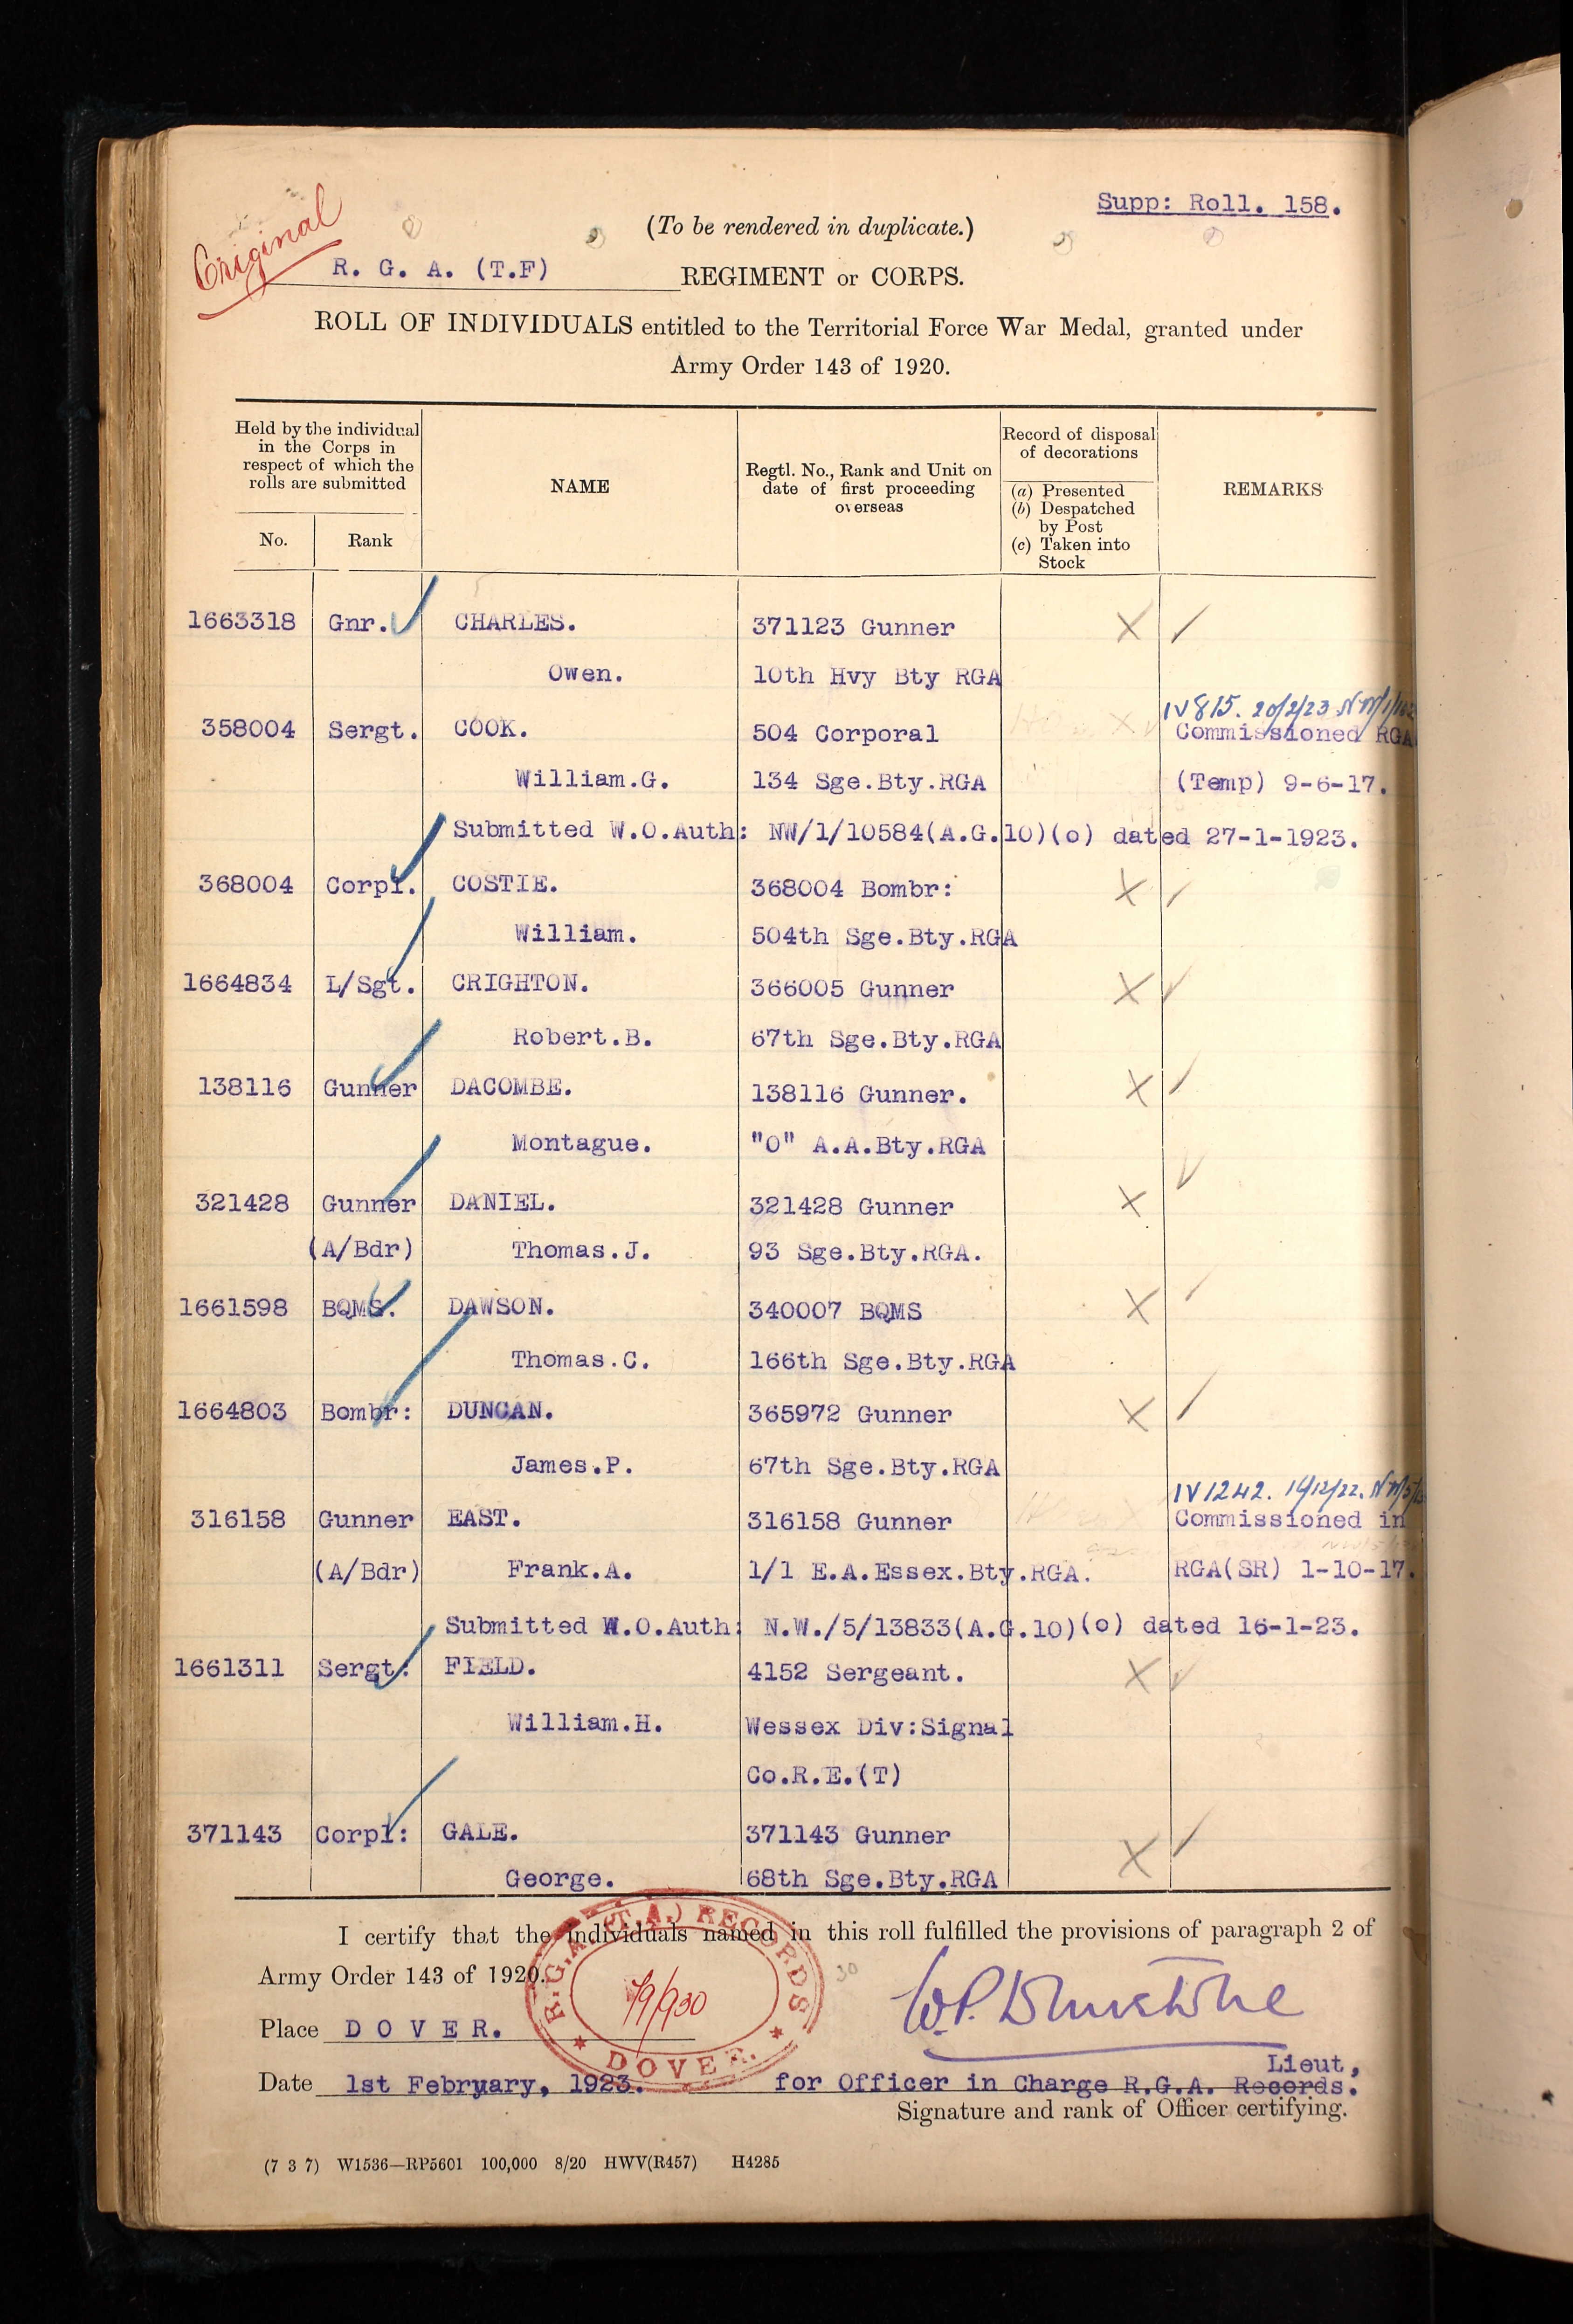 Original
Supp: Roll. 158.
(To be rendered in duplicate.)
R. G. A. (T.F) REGIMENT or CORPS.
ROLL OF INDIVIDUALS entitled to the Territorial Force War Medal, granted under
Army Order 143 of 1920.
Held by the individual
in the Corps in
respect of which the
rolls are submitted
No. Rank
NAME
Regtl. No., Rank and Unit on
date of first proceeding
overseas
Record of disposal
of decorations
(a) Presented
(b) Despatched
by Post
(c) Taken into
Stock
REMARKS
1663318 Gnr. CHARLES. 371123 Gunner X
Owen. 10th Hvy Bty RGA
IV 815. 20/2/23
358004 Sergt. COOK. 504 Corporal Commissioned RGA
William.G. 134 Sge.Bty.RGA (Temp) 9-6-17.
Submitted W.O.Auth: NW/1/10584(A.G.10)(o) dated 27-1-1923.
368004 Corpl. COSTIE. 368004 Bombr: X
William. 504th Sge.Bty.RGA
1664834 L/Sgt. CRIGHTON. 366005 Gunner X
Robert.B. 67th Sge.Bty.RGA
138116 Gunner DACOMBE. 138116 Gunner. X
Montague. "O" A.A.Bty.RGA
321428 Gunner DANIEL. 321428 Gunner X
(A/Bdr) Thomas.J. 93 Sge.Bty.RGA.
1661598 BQMS. DAWSON. 340007 BQMS X
Thomas.C. 166th Sge.Bty.RGA
1664803 Bombr: DUNCAN. 365972 Gunner X
James.P. 67th Sge.Bty.RGA
IV 1242.
316158 Gunner EAST. 316158 Gunner Commissioned in
(A/Bdr) Frank.A. 1/1 E.A.Essex.Bty.RGA. RGA(SR) 1-10-17.
Submitted W.O.Auth: N.W./5/13833(A.G.10)(o) dated 16-1-23.
1661311 Sergt: FIELD. 4152 Sergeant. X
William.H. Wessex Div:Signal
Co.R.E.(T)
371143 Corpl: GALE. 371143 Gunner X
George. 68th Sge.Bty.RGA
I certify that the individuals named in this roll fulfilled the provisions of paragraph 2 of
Army Order 143 of 1920.
R.G.A. (T.A.) RECORDS
DOVER.
30
Place D O V E R.
Lieut,
Date 1st February, 1923. for Officer in Charge R.G.A. Records.
Signature and rank of Officer certifying.
(7 3 7) W1536—RP5601 100,000 8/20 HWV(R457) H4285